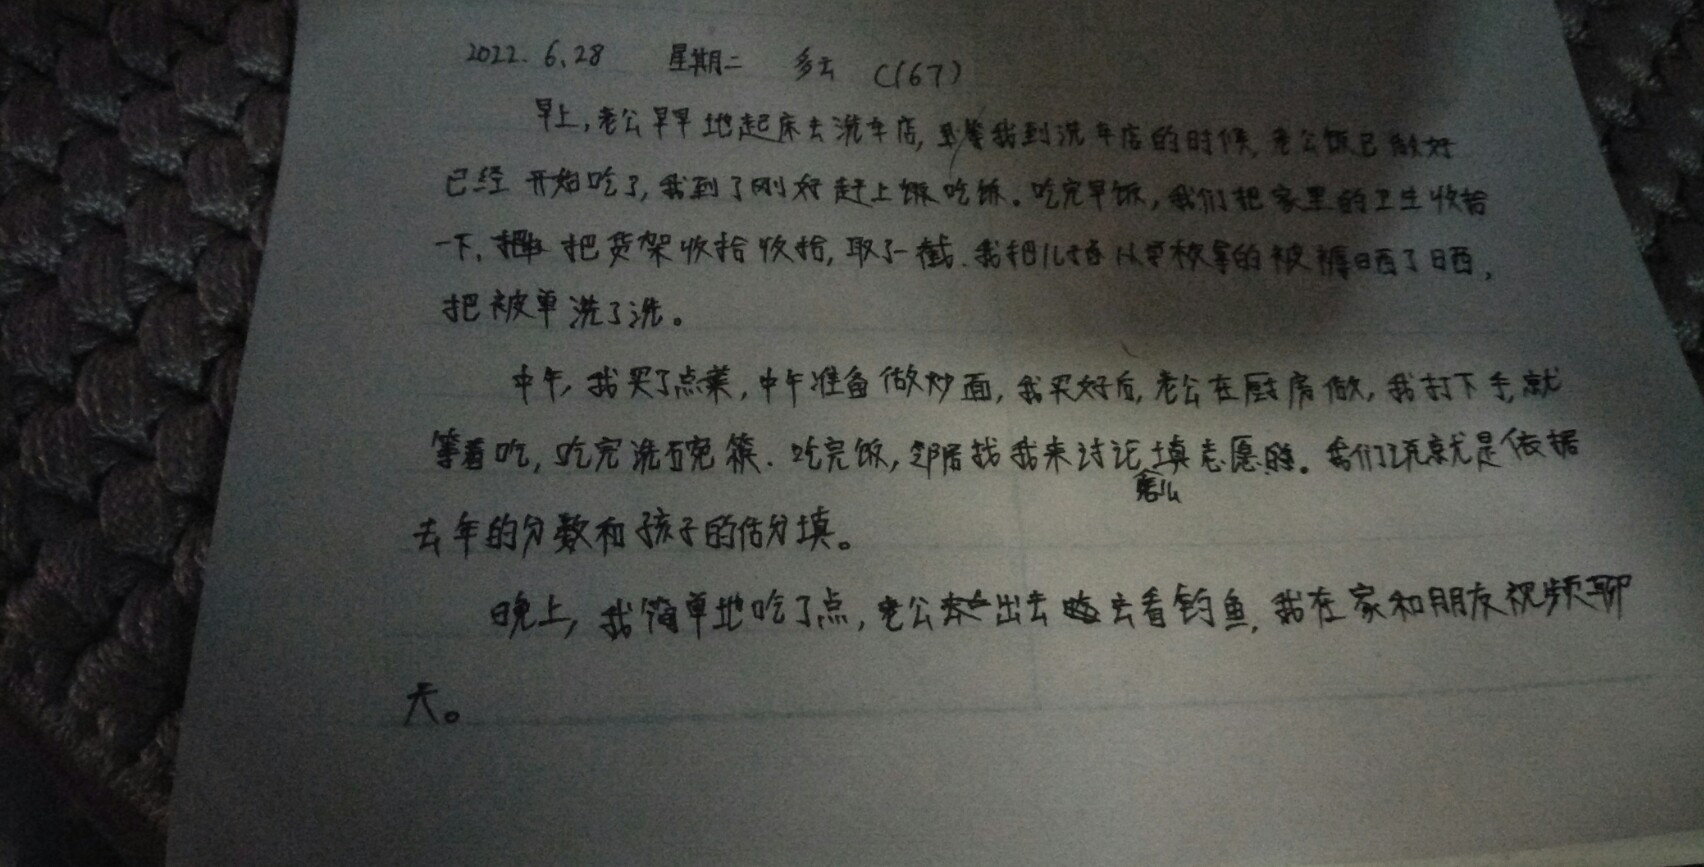 2022.6.28 星期二 多云 C(67)
早上，老公早早地起床去洗车店，等我到洗车店的时候，老公饭已做好
已经开始吃了，我到了刚好赶上饭吃饭。吃完早饭，我们把家里的卫生收拾
一下，把货架收拾收拾，取了一截。我把儿子从学校拿的被褥晒了晒，
把被单洗了洗。
中午，我买了点菜，中午准备做炒面，我买好后，老公在厨房做，我打下手，就
等着吃，吃完洗碗筷．吃完饭，邻居找我来讨论怎么填志愿。我们说就是依据
去年的分数和孩子的估分填。
晚上，我简单地吃了点，老公出去去看钓鱼，我在家和朋友视频聊
天。